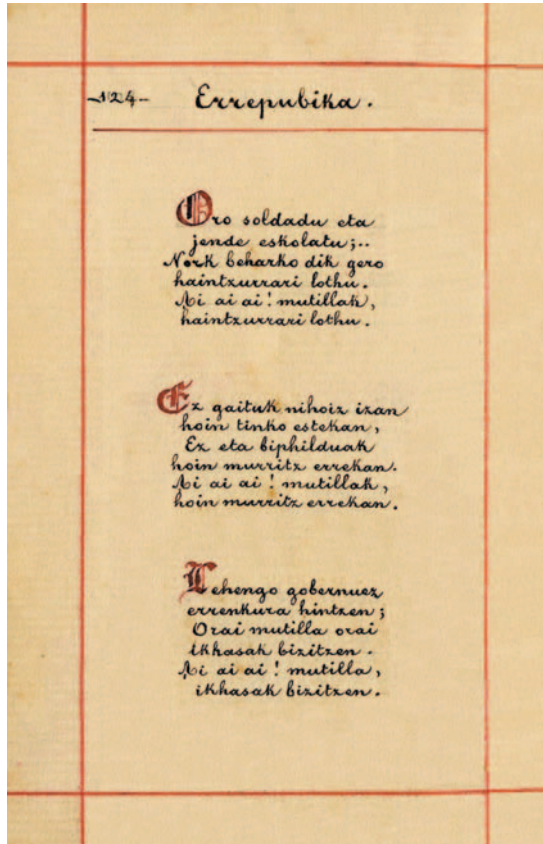 -124- Errepubika.
Oro soldadu eta
jende eskolatu;..
Nork beharko dik gero
haintzurrari lothu.
Ai ai ai! mutillak,
haintzurrari lothu.
Ez gaituk nihoiz izan
hoin tinko estekan,
Ez eta biphilduak
hoin murritz errekan.
Ai ai ai! mutillak,
hoin murritz errekan.
Lehengo gobernuez
errenkura hintzen;
Orai mutilla orai
ikhasak bizitzen.
Ai ai ai! mutilla,
ikhasak bizitzen.